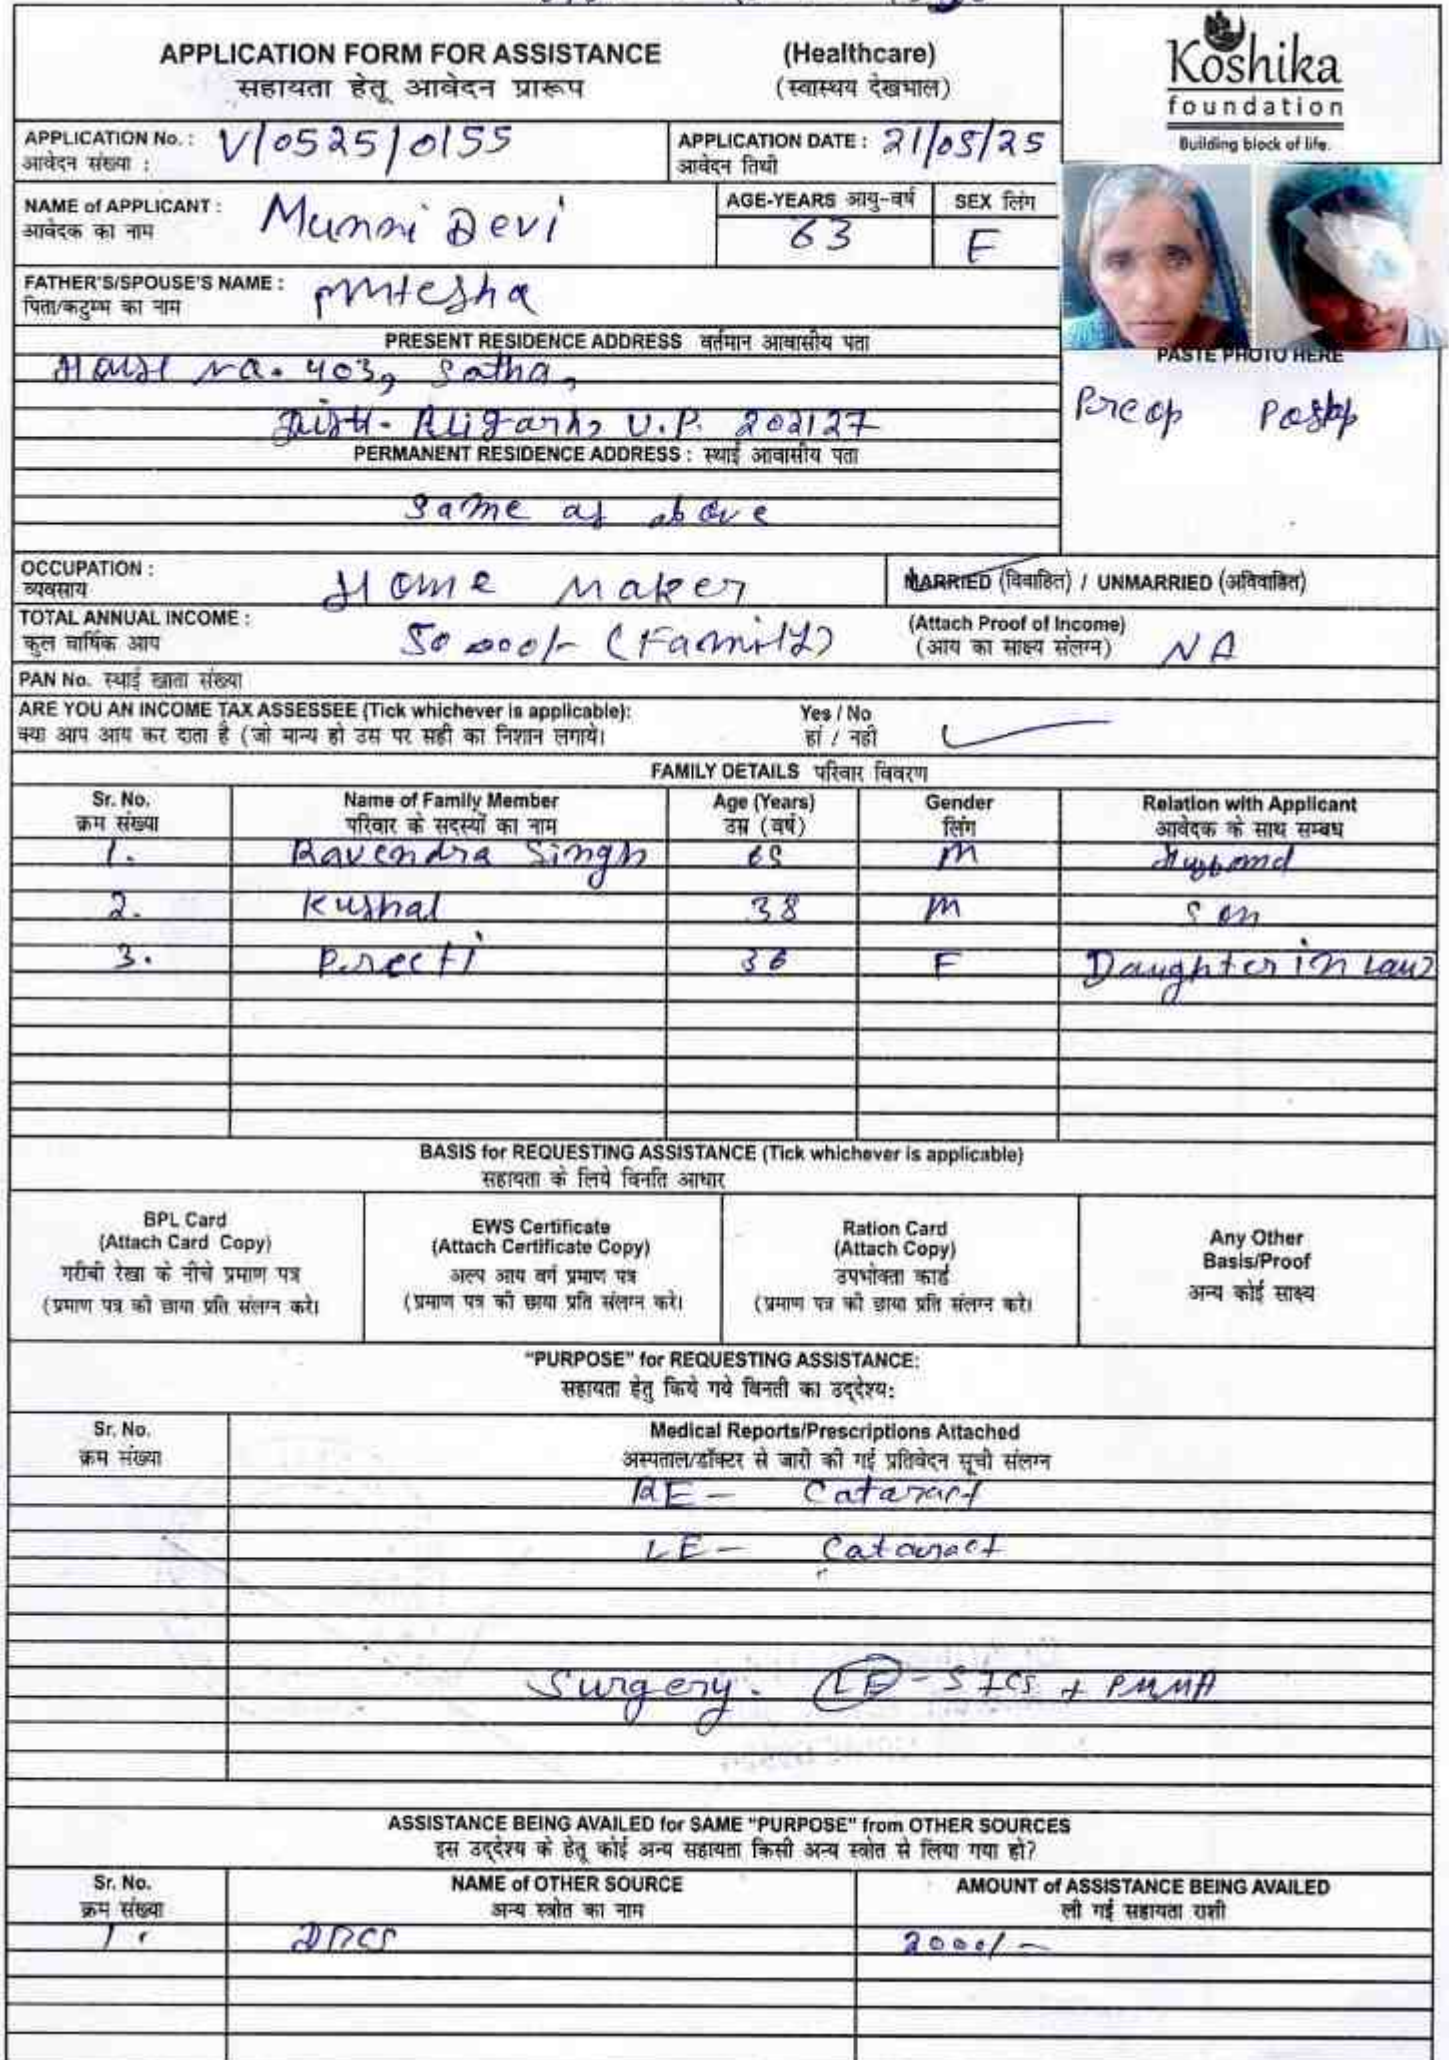 APPLICATION FORM FOR ASSISTANCE (Healthcare)
सहायता हेतू आवेदन प्रारूप (स्वास्थय देखभाल)
Koshika
foundation
Building block of life.
APPLICATION No. : V/0525/0155 APPLICATION DATE : 21/05/25
आवेदन संख्या : आवेदन तिथी
NAME of APPLICANT : Munni Devi AGE-YEARS आयु-वर्ष SEX लिंग
आवेदक का नाम 63 F
FATHER'S/SPOUSE'S NAME :
पिता/कटुम्भ का नाम
PRESENT RESIDENCE ADDRESS वर्तमान आवासीय पता
PASTE PHOTO HERE
House No. 403, Satha,
Preop Postop
Distt. Aligarh, U.P. 202127
PERMANENT RESIDENCE ADDRESS : स्थाई आवासीय पता
Same as above
OCCUPATION : Home Maker MARRIED (विवाहित) / UNMARRIED (अविवाहित)
व्यवसाय
TOTAL ANNUAL INCOME : 50000/- (Family) (Attach Proof of Income) NA
कुल वार्षिक आय (आय का साक्ष्य संलग्न)
PAN No. स्थाई खाता संख्या
ARE YOU AN INCOME TAX ASSESSEE (Tick whichever is applicable): Yes / No
क्या आप आय कर दाता है (जो मान्य हो उस पर सही का निशान लगाये। हां / नही
FAMILY DETAILS परिवार विवरण
Sr. No. Name of Family Member Age (Years) Gender Relation with Applicant
क्रम संख्या परिवार के सदस्यों का नाम उम्र (वर्ष) लिंग आवेदक के साथ सम्बध
1. Ravendra Singh 65 M Husband
2. Kushal 38 M Son
3. Preeti 36 F Daughter in Law
BASIS for REQUESTING ASSISTANCE (Tick whichever is applicable)
सहायता के लिये विनति आधार
BPL Card
(Attach Card Copy)
गरीबी रेखा के नीचे प्रमाण पत्र
(प्रमाण पत्र की छाया प्रति संलग्न करे।
EWS Certificate
(Attach Certificate Copy)
अल्प आय वर्ग प्रमाण पत्र
(प्रमाण पत्र की छाया प्रति संलग्न करे।
Ration Card
(Attach Copy)
उपभोक्ता कार्ड
(प्रमाण पत्र की छाया प्रति संलग्न करे।
Any Other
Basis/Proof
अन्य कोई साक्ष्य
"PURPOSE" for REQUESTING ASSISTANCE:
सहायता हेतु किये गये विनती का उद्देश्य:
Sr. No. Medical Reports/Prescriptions Attached
क्रम संख्या अस्पताल/डॉक्टर से जारी की गई प्रतिवेदन सूची संलग्न
RE - Cataract
LE - Cataract
Surgery. LE - SICS + PMMA
ASSISTANCE BEING AVAILED for SAME "PURPOSE" from OTHER SOURCES
इस उद्देश्य के हेतू कोई अन्य सहायता किसी अन्य स्त्रोत से लिया गया हो?
Sr. No. NAME of OTHER SOURCE AMOUNT of ASSISTANCE BEING AVAILED
क्रम संख्या अन्य स्त्रोत का नाम ली गई सहायता राशी
1. 2000/-